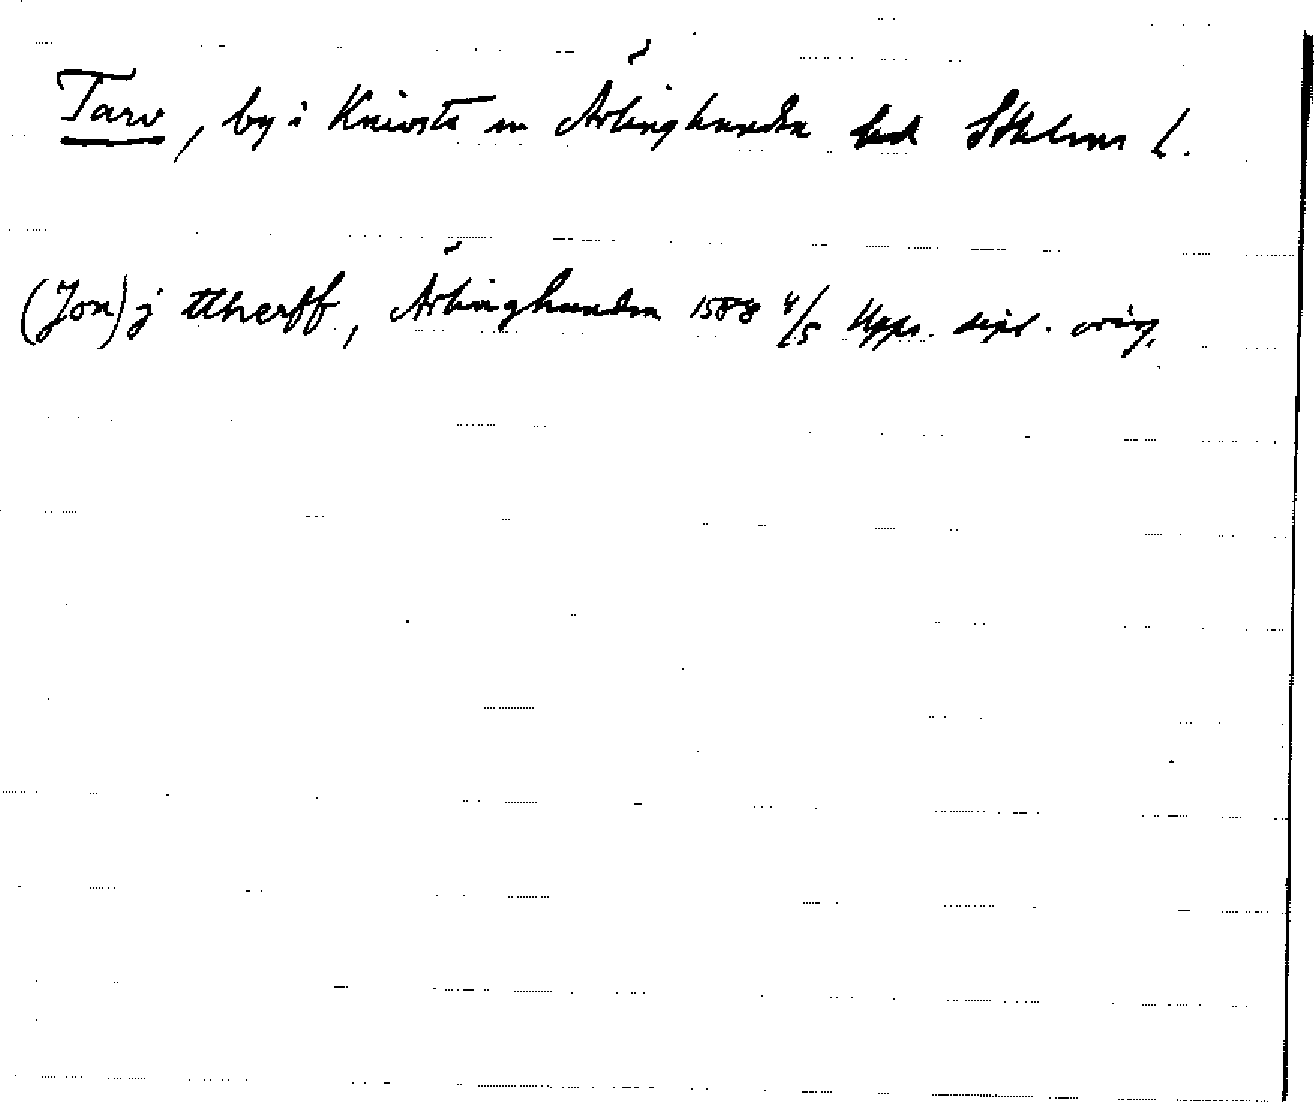 Tarv, by i Knivsta sn Ärlinghundra hd Sthlms l.
(Jon) j ttherff, Ärlinghundra 1588 4/5 Upps. dipl. orig.